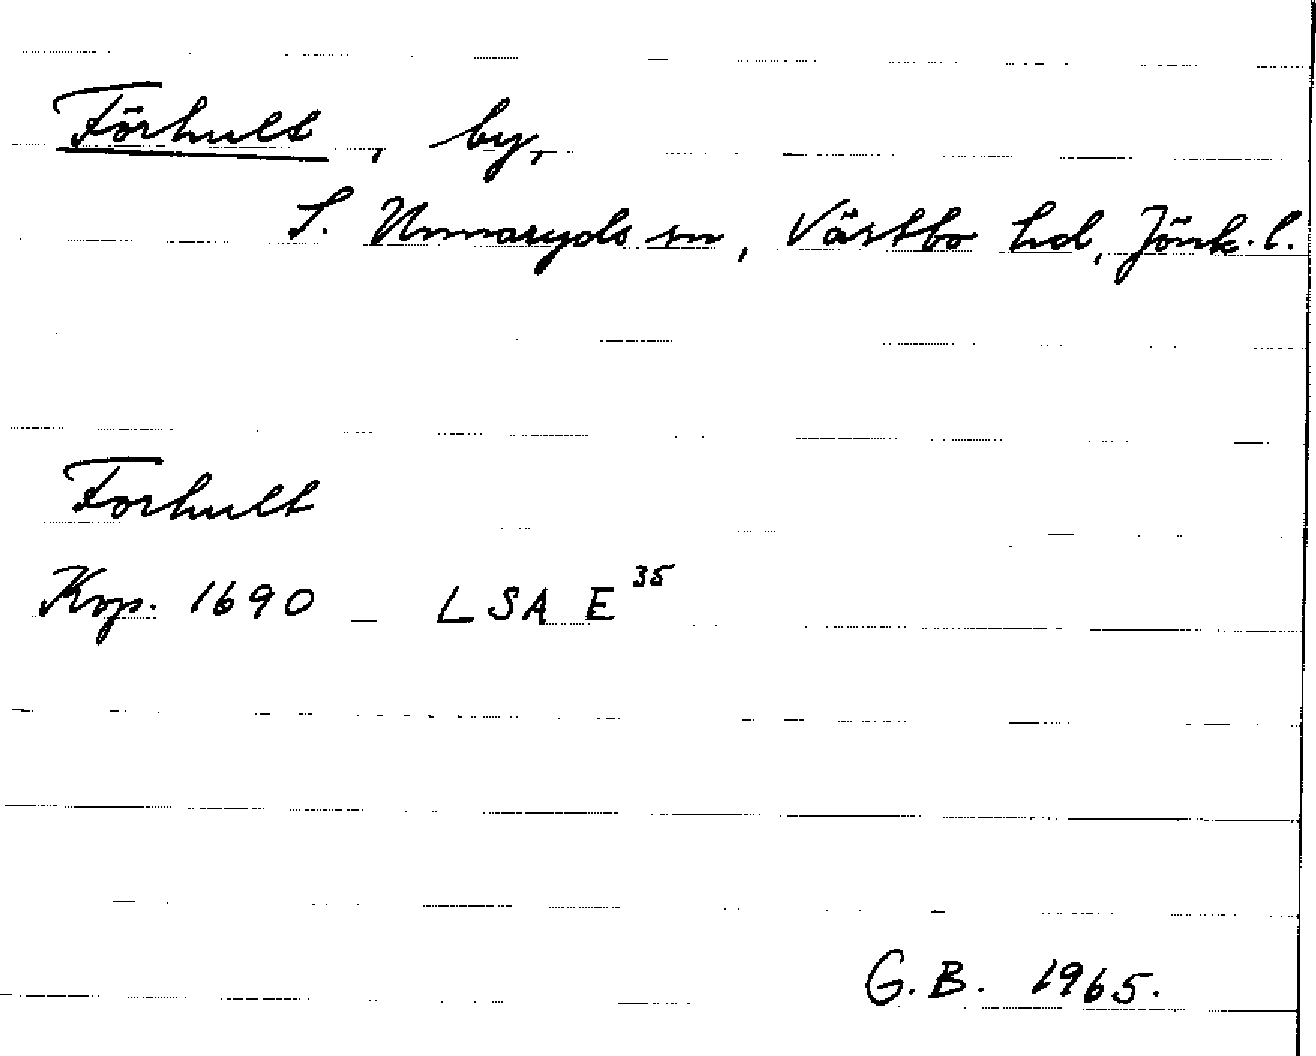 Förhult, by,
S. Unnaryds sn, Västbo hd, Jönk. l.
Forhult
Kop. 1690 LSA E 35
G.B. 1965.